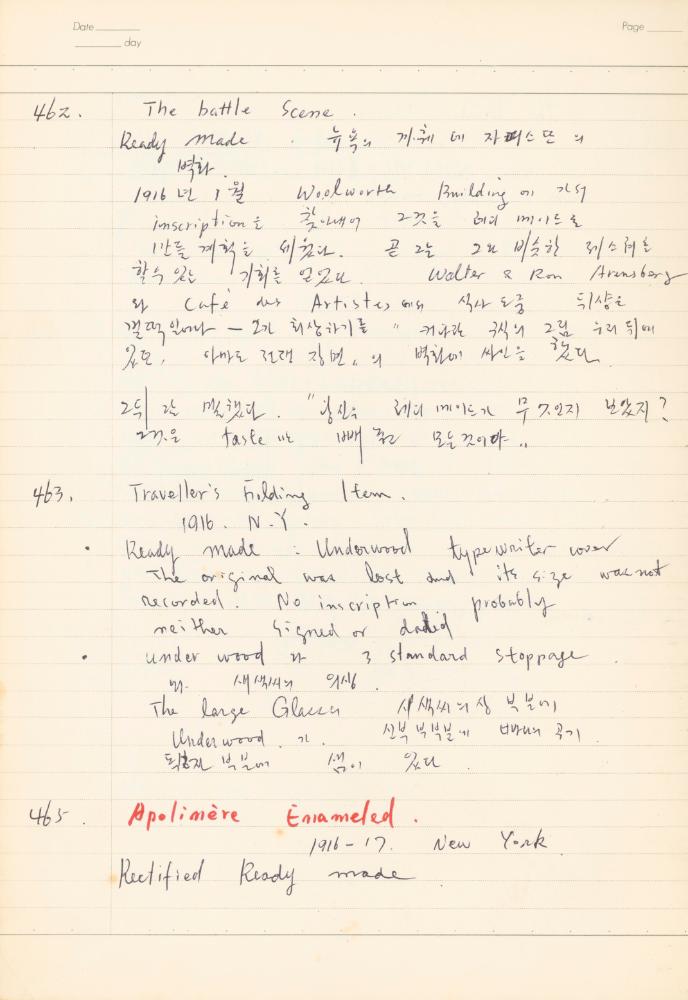 Date
day
Page
462. The battle Scene.
Ready made. 뉴욕의 까훼 데 자르띠스뜨의
벽화.
1916년 1월 Woolworth Building에 가서
inscription을 찾아내어 그것을 레디메이드로
만들 계획을 세웠다. 곧 그는 그와 비슷한 제스쳐를
할 수 있는 기회를 얻었다. Walter & Ron Arensberg
와 Café des Artistes에서 식사도중 뒤샹은
벌떡 일어나 — 그가 회상하기를 " 커다란 구식의 그림 우리 뒤에
있던, 아마도 전쟁 장면,의 벽화에 싸인을 했다.
그뒤 간 말했다. "당신은 레디메이드가 무것인지 보았지?
그것은 taste만 빼놓고 모든것이야"
463. Traveller's Folding Item.
1916. N.Y.
• Ready made : Underwood typewriter cover
The original was lost and its size was not
recorded. No inscription probably
neither signed or dadied
• under wood 과 3 standard stoppage.
및. 새색씨의 의상.
The large Glass의 새색씨의 상 부분에
Underwood. 가. 신부 부분에
부분에 샘이 있다.
465. Apolinère Enameled.
1916-17. New York.
Rectified Ready made